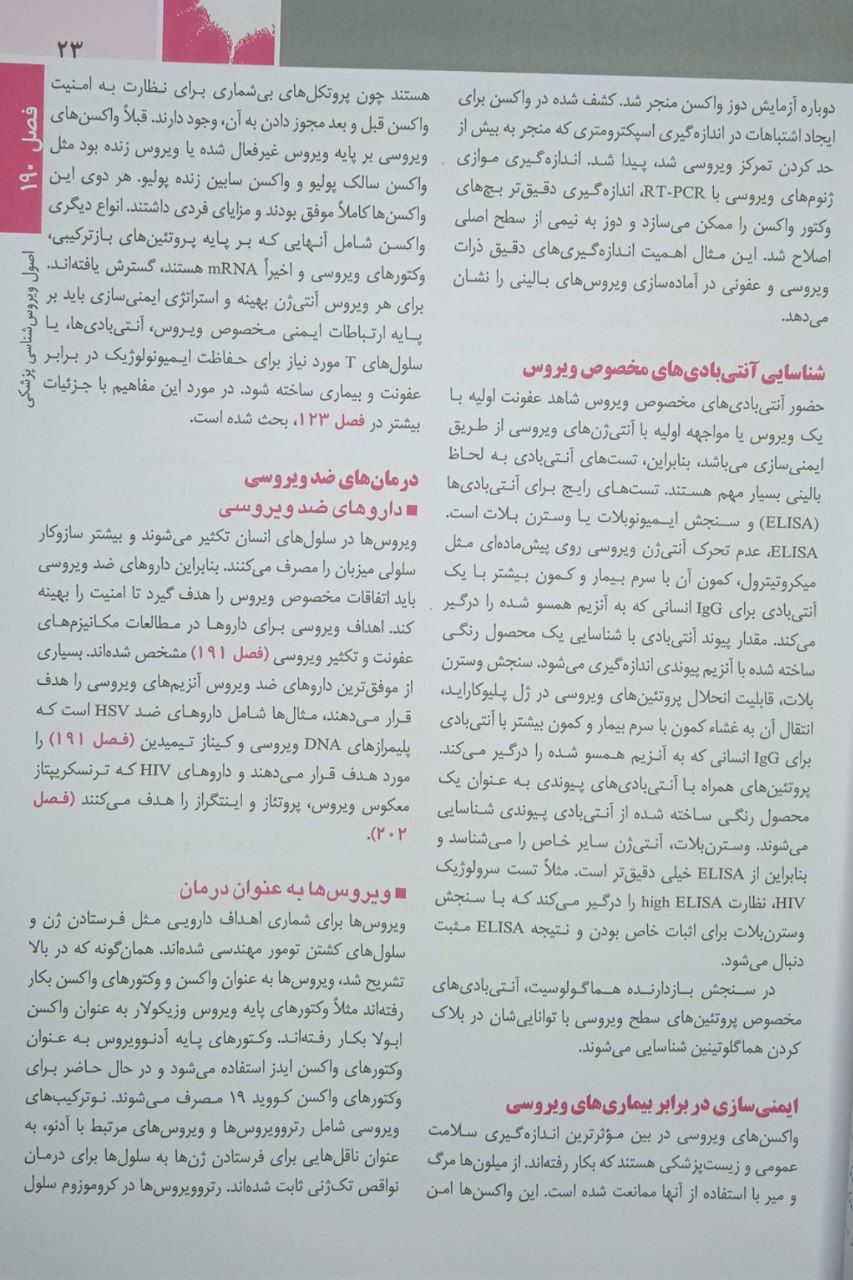 ۲۳
فصل ۱۹۰
اصول ویروس‌شناسی پزشکی
دوباره آزمایش دوز واکسن منجر شد. کشف شده در واکسن برای
ایجاد اشتباهات در اندازه‌گیری اسپکترومتری که منجر به بیش از
حد کردن تمرکز ویروسی شد، پیدا شد. اندازه‌گیری موازی
ژنوم‌های ویروسی با RT-PCR، اندازه‌گیری دقیق‌تر بچ‌های
وکتور واکسن را ممکن می‌سازد و دوز به نیمی از سطح اصلی
اصلاح شد. این مثال اهمیت اندازه‌گیری‌های دقیق ذرات
ویروسی و عفونی در آماده‌سازی ویروس‌های بالینی را نشان
می‌دهد.
شناسایی آنتی‌بادی‌های مخصوص ویروس
حضور آنتی‌بادی‌های مخصوص ویروس شاهد عفونت اولیه با
یک ویروس یا مواجهه اولیه با آنتی‌ژن‌های ویروسی از طریق
ایمنی‌سازی می‌باشد، بنابراین، تست‌های آنتی‌بادی به لحاظ
بالینی بسیار مهم هستند. تست‌های رایج برای آنتی‌بادی‌ها
(ELISA) و سنجش ایمیونوبلات یا وسترن بلات است.
ELISA، عدم تحرک آنتی‌ژن ویروسی روی پیش‌ماده‌ای مثل
میکروتیترول، کمون آن با سرم بیمار و کمون بیشتر با یک
آنتی‌بادی برای IgG انسانی که به آنزیم همسو شده را درگیر
می‌کند. مقدار پیوند آنتی‌بادی با شناسایی یک محصول رنگی
ساخته شده با آنزیم پیوندی اندازه‌گیری می‌شود. سنجش وسترن
بلات، قابلیت انحلال پروتئین‌های ویروسی در ژل پلیوکاراید،
انتقال آن به غشاء کمون با سرم بیمار و کمون بیشتر با آنتی‌بادی
برای IgG انسانی که به آنزیم همسو شده را درگیر می‌کند.
پروتئین‌های همراه با آنتی‌بادی‌های پیوندی به عنوان یک
محصول رنگی ساخته شده از آنتی‌بادی پیوندی شناسایی
می‌شوند. وسترن‌بلات، آنتی‌ژن سایر خاص را می‌شناسد و
بنابراین از ELISA خیلی دقیق‌تر است. مثلاً تست سرولوژیک
HIV، نظارت high ELISA را درگیر می‌کند که با سنجش
وسترن‌بلات برای اثبات خاص بودن و نتیجه ELISA مثبت
دنبال می‌شود.
در سنجش بازدارنده هماگولوسیت، آنتی‌بادی‌های
مخصوص پروتئین‌های سطح ویروسی با توانایی‌شان در بلاک
کردن هماگلوتینین شناسایی می‌شوند.
ایمنی‌سازی در برابر بیماری‌های ویروسی
واکسن‌های ویروسی در بین مؤثرترین اندازه‌گیری سلامت
عمومی و زیست‌پزشکی هستند که بکار رفته‌اند. از میلون‌ها مرگ
و میر با استفاده از آنها ممانعت شده است. این واکسن‌ها امن
هستند چون پروتکل‌های بی‌شماری برای نظارت به امنیت
واکسن قبل و بعد مجوز دادن به آن، وجود دارند. قبلاً واکسن‌های
ویروسی بر پایه ویروس غیرفعال شده یا ویروس زنده بود مثل
واکسن سالک پولیو و واکسن سابین زنده پولیو. هر دوی این
واکسن‌ها کاملاً موفق بودند و مزایای فردی داشتند. انواع دیگری
واکسن شامل آنهایی که بر پایه پروتئین‌های بازترکیبی،
وکتورهای ویروسی و اخیراً mRNA هستند، گسترش یافته‌اند.
برای هر ویروس آنتی‌ژن بهینه و استراتژی ایمنی‌سازی باید بر
پایه ارتباطات ایمنی مخصوص ویروس، آنتی‌بادی‌ها، یا
سلول‌های T مورد نیاز برای حفاظت ایمیونولوژیک در برابر
عفونت و بیماری ساخته شود. در مورد این مفاهیم با جزئیات
بیشتر در فصل ۱۲۳، بحث شده است.
درمان‌های ضد ویروسی
■ داروهای ضد ویروسی
ویروس‌ها در سلول‌های انسان تکثیر می‌شوند و بیشتر سازوکار
سلولی میزبان را مصرف می‌کنند. بنابراین داروهای ضد ویروسی
باید اتفاقات مخصوص ویروس را هدف گیرد تا امنیت را بهینه
کند. اهداف ویروسی برای داروها در مطالعات مکانیزم‌های
عفونت و تکثیر ویروسی (فصل ۱۹۱) مشخص شده‌اند. بسیاری
از موفق‌ترین داروهای ضد ویروس آنزیم‌های ویروسی را هدف
قرار می‌دهند، مثال‌ها شامل داروهای ضد HSV است که
پلیمرازهای DNA ویروسی و کیناز تیمیدین (فصل ۱۹۱) را
مورد هدف قرار می‌دهند و داروهای HIV که ترنسکریپتاز
معکوس ویروس، پروتئاز و اینتگراز را هدف می‌کنند (فصل
۲۰۲).
■ ویروس‌ها به عنوان درمان
ویروس‌ها برای شماری اهداف دارویی مثل فرستادن ژن و
سلول‌های کشتن تومور مهندسی شده‌اند. همان‌گونه که در بالا
تشریح شد، ویروس‌ها به عنوان واکسن و وکتورهای واکسن بکار
رفته‌اند مثلاً وکتورهای پایه ویروس وزیکولار به عنوان واکسن
ابولا بکار رفته‌اند. وکتورهای پایه آدنوویروس به عنوان
وکتورهای واکسن ایدز استفاده می‌شود و در حال حاضر برای
وکتورهای واکسن کووید ۱۹ مصرف می‌شوند. نوترکیب‌های
ویروسی شامل رتروویروس‌ها و ویروس‌های مرتبط با آدنو، به
عنوان ناقل‌هایی برای فرستادن ژن‌ها به سلول‌ها برای درمان
نواقص تک‌ژنی ثابت شده‌اند. رتروویروس‌ها در کروموزوم سلول